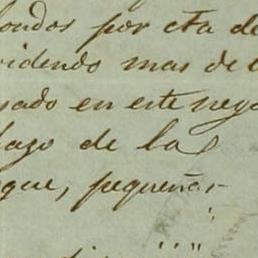 fondos por cta de
videndo mas de
sado en este nego
hago de la
que, pequeños